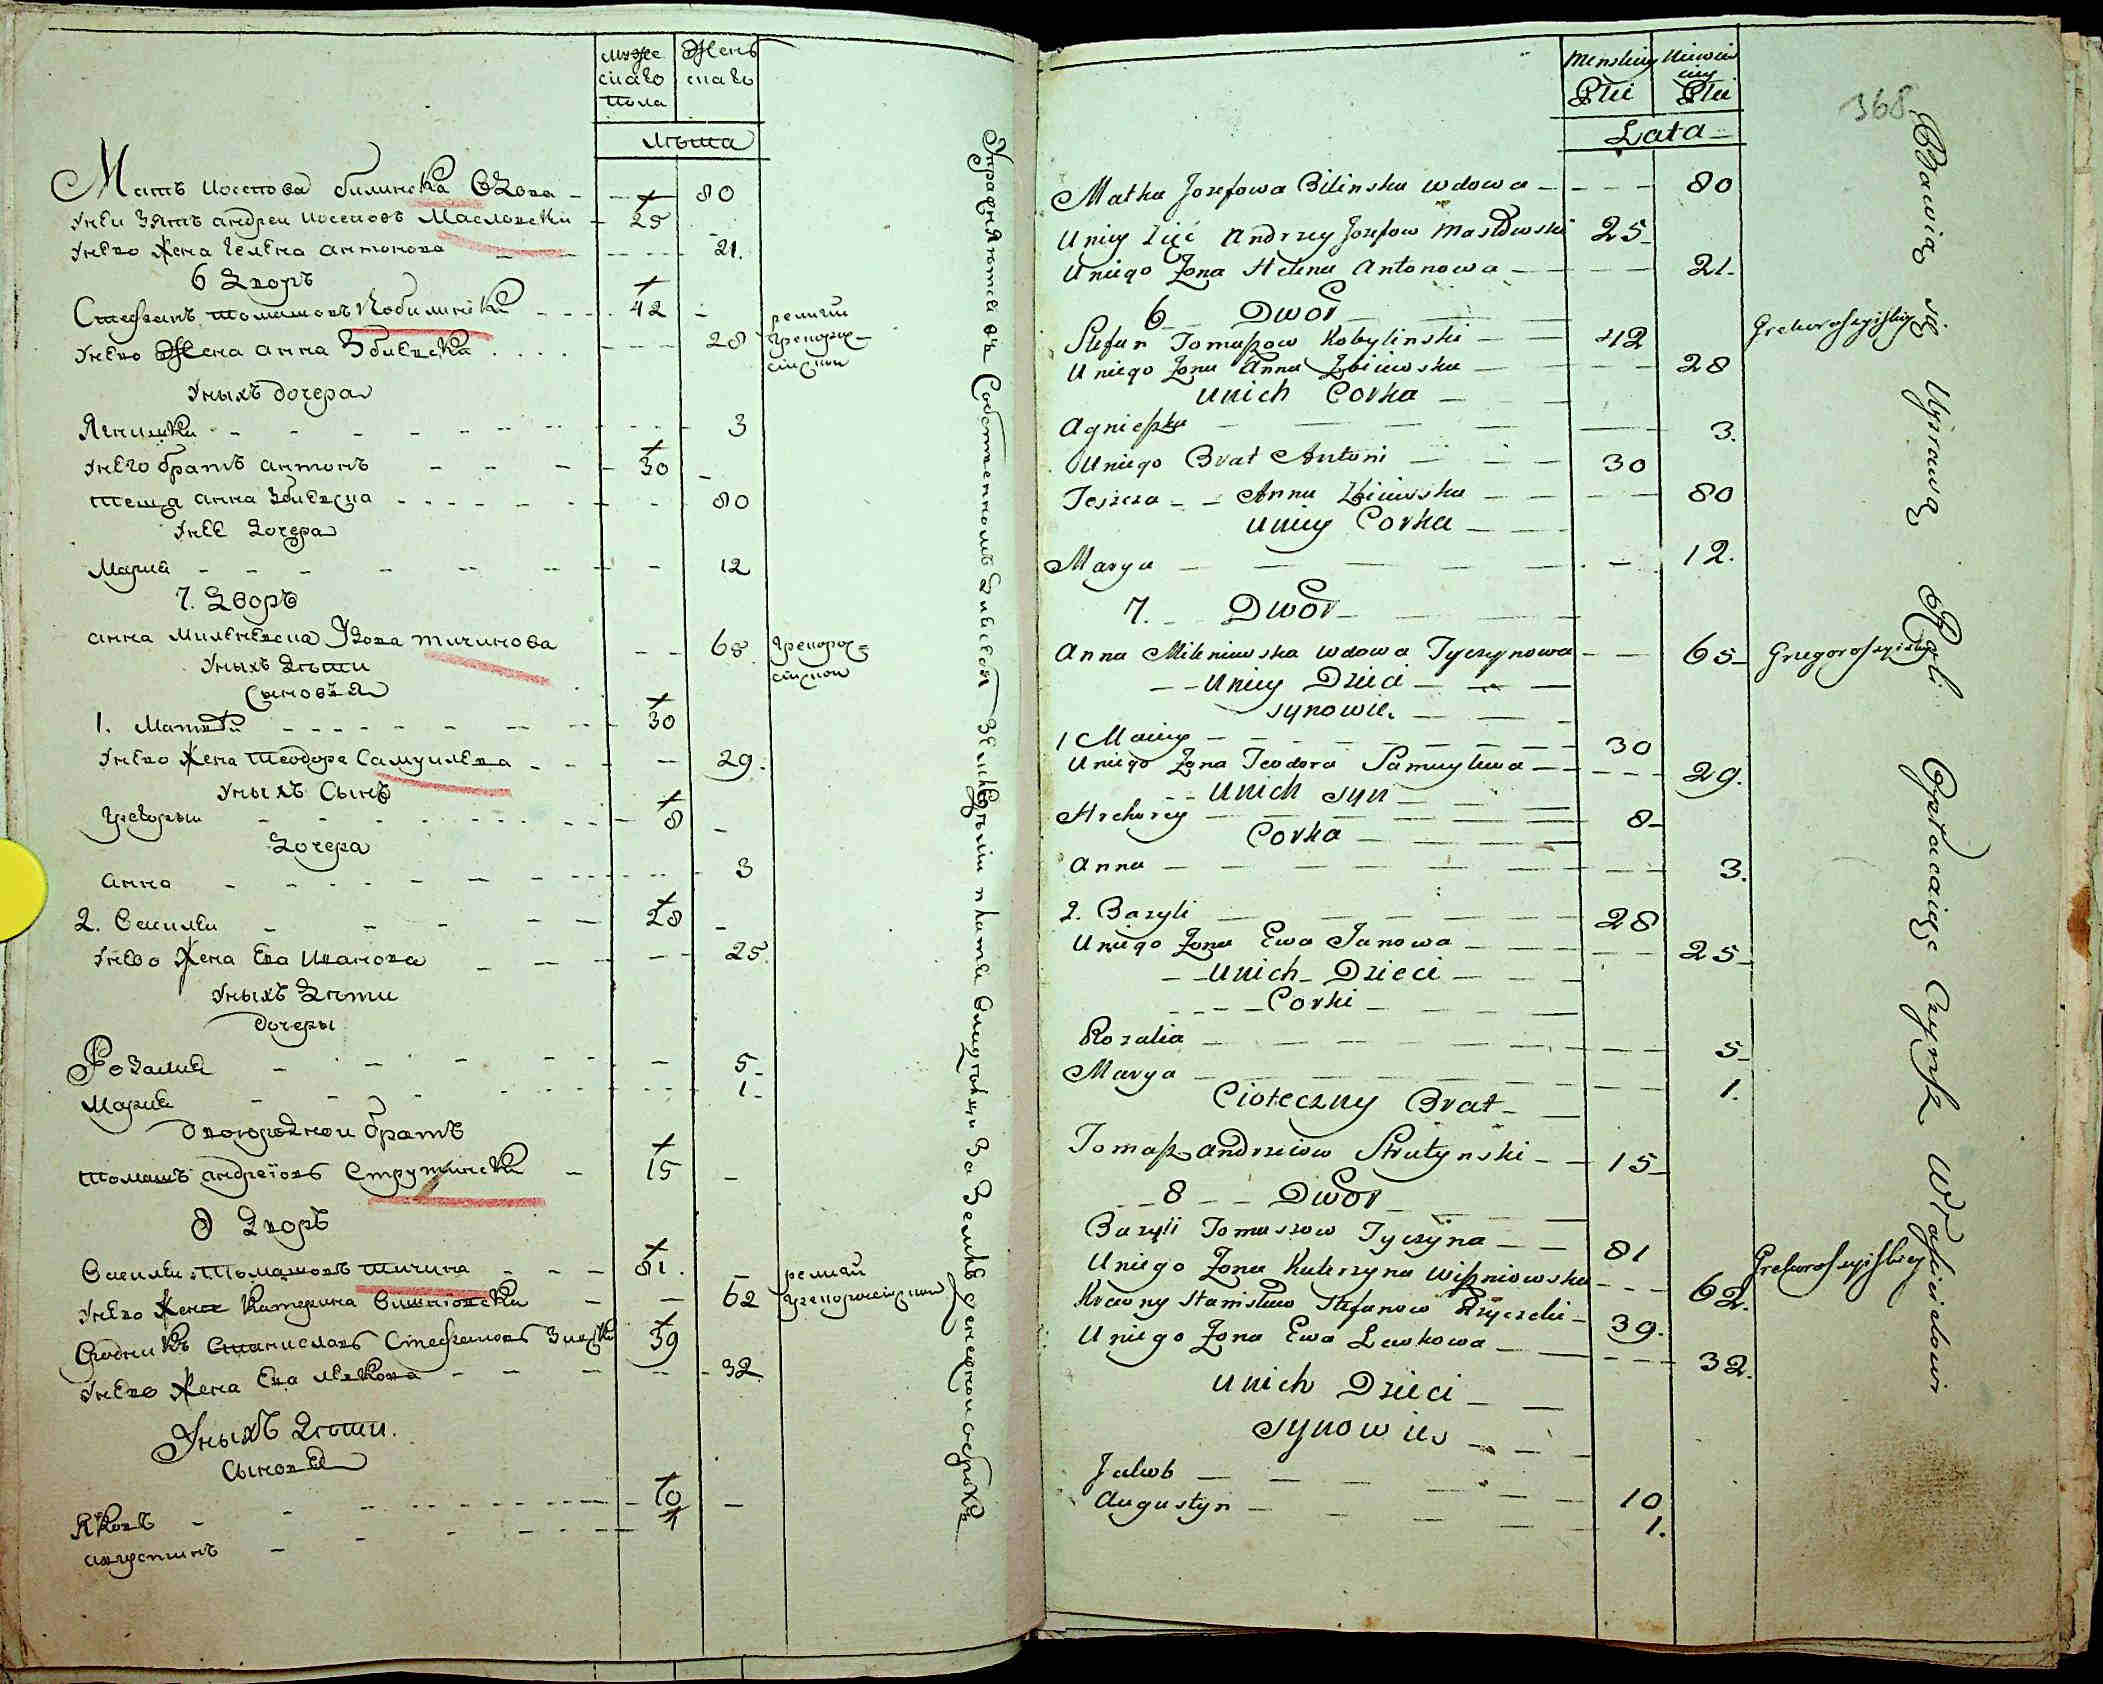 муже
скаго
пола
Жен
скаго
Лѣта
Мать Иосепова билинска вдова 80
Унеи Зять андреи иосеповъ Масловски 25
Унево жена Гелена антонова 21.
6 дворъ
Стефанъ томашовъ Кобилински 42
религии
Унево Жена анна Збиевска 28
грекорос
сииской
Уныхъ дочера
Ягнишка 3
Унего братъ антонъ 30
теща анна Збиевска 80
Унее дочера
Мария 12
7. дворъ
анна Миленевска Удова тичинова 65
грекорос
сииской
Уныхъ дѣти
Сыновѣя
1. Матвѣй 30
Унево жена теодора Самуилева 29.
Уныхъ Сынъ
Грегорыи 8
дочера
анна 3
2. Василеи 28
Унево Жена Ева Иванова 25.
Уныхъ дѣти
дочеры
Розалия 5
Мария 1
двоюродной братъ
томашъ андреiовъ Струтински 15
8 дворъ
Василеи Томашовъ тичина 81.
религии
Унево Жена Катерина вишнiовска 62
грекоросiиской
Сродникъ Станиславъ Стефановъ 39
Унево Жена Ева левкова 32.
Уныхъ дѣти.
Сыновя
Яковъ 10
августинъ 1
Menskiey
Ptci
Niewies
ciey
Ptci
368
Lata
Matka Jozefowa Bilinska wdowa 80
Uniey Zięć Andrzey Jozefow Masłowski 25
Uniego Zona Helena Antonowa 21.
6 Dwor
Stefan Tomaszow Kobylinski 42
Grekorossyiskiey
Uniego Zona Anna Zbiewska 28
Unich Corka
Agnieszka 3.
Uniego Brat Antoni 30
Teszcza Anna Zbiewska 80
Uniey Corka
Marya 12.
7. Dwor
Anna Mileniewska wdowa Tyczynowa 65
Gregorossyiskiey
Uniey Dzieci
Synowie.
1 Maciey 30
Uniego Zona Teodora Samuylewa 29.
Unich Syn
Hrehorey 8
Corka
Anna 3.
2. Bazyli 28
Uniego Zona Ewa Janowa 25
Unich Dzieci
Corki
Rozalia 5
Marya 1.
Cioteczny Brat
Tomasz Andrzeiow Strutynski 15
8 Dwor
Bazyli Tomaszow Tyczyna 81
Grekorossyiskiey
Uniego Zona Katerzyna Wiszniowska 62.
Krewny Stanisław Stefanow 39.
Uniego Zona Ewa Lewkowa 32.
Unich Dzieci
Synowie
Jakob 10
Augustyn 1.
Bawią się Uprawą Roli Opłacaiąc Czynsz Właścicielowi